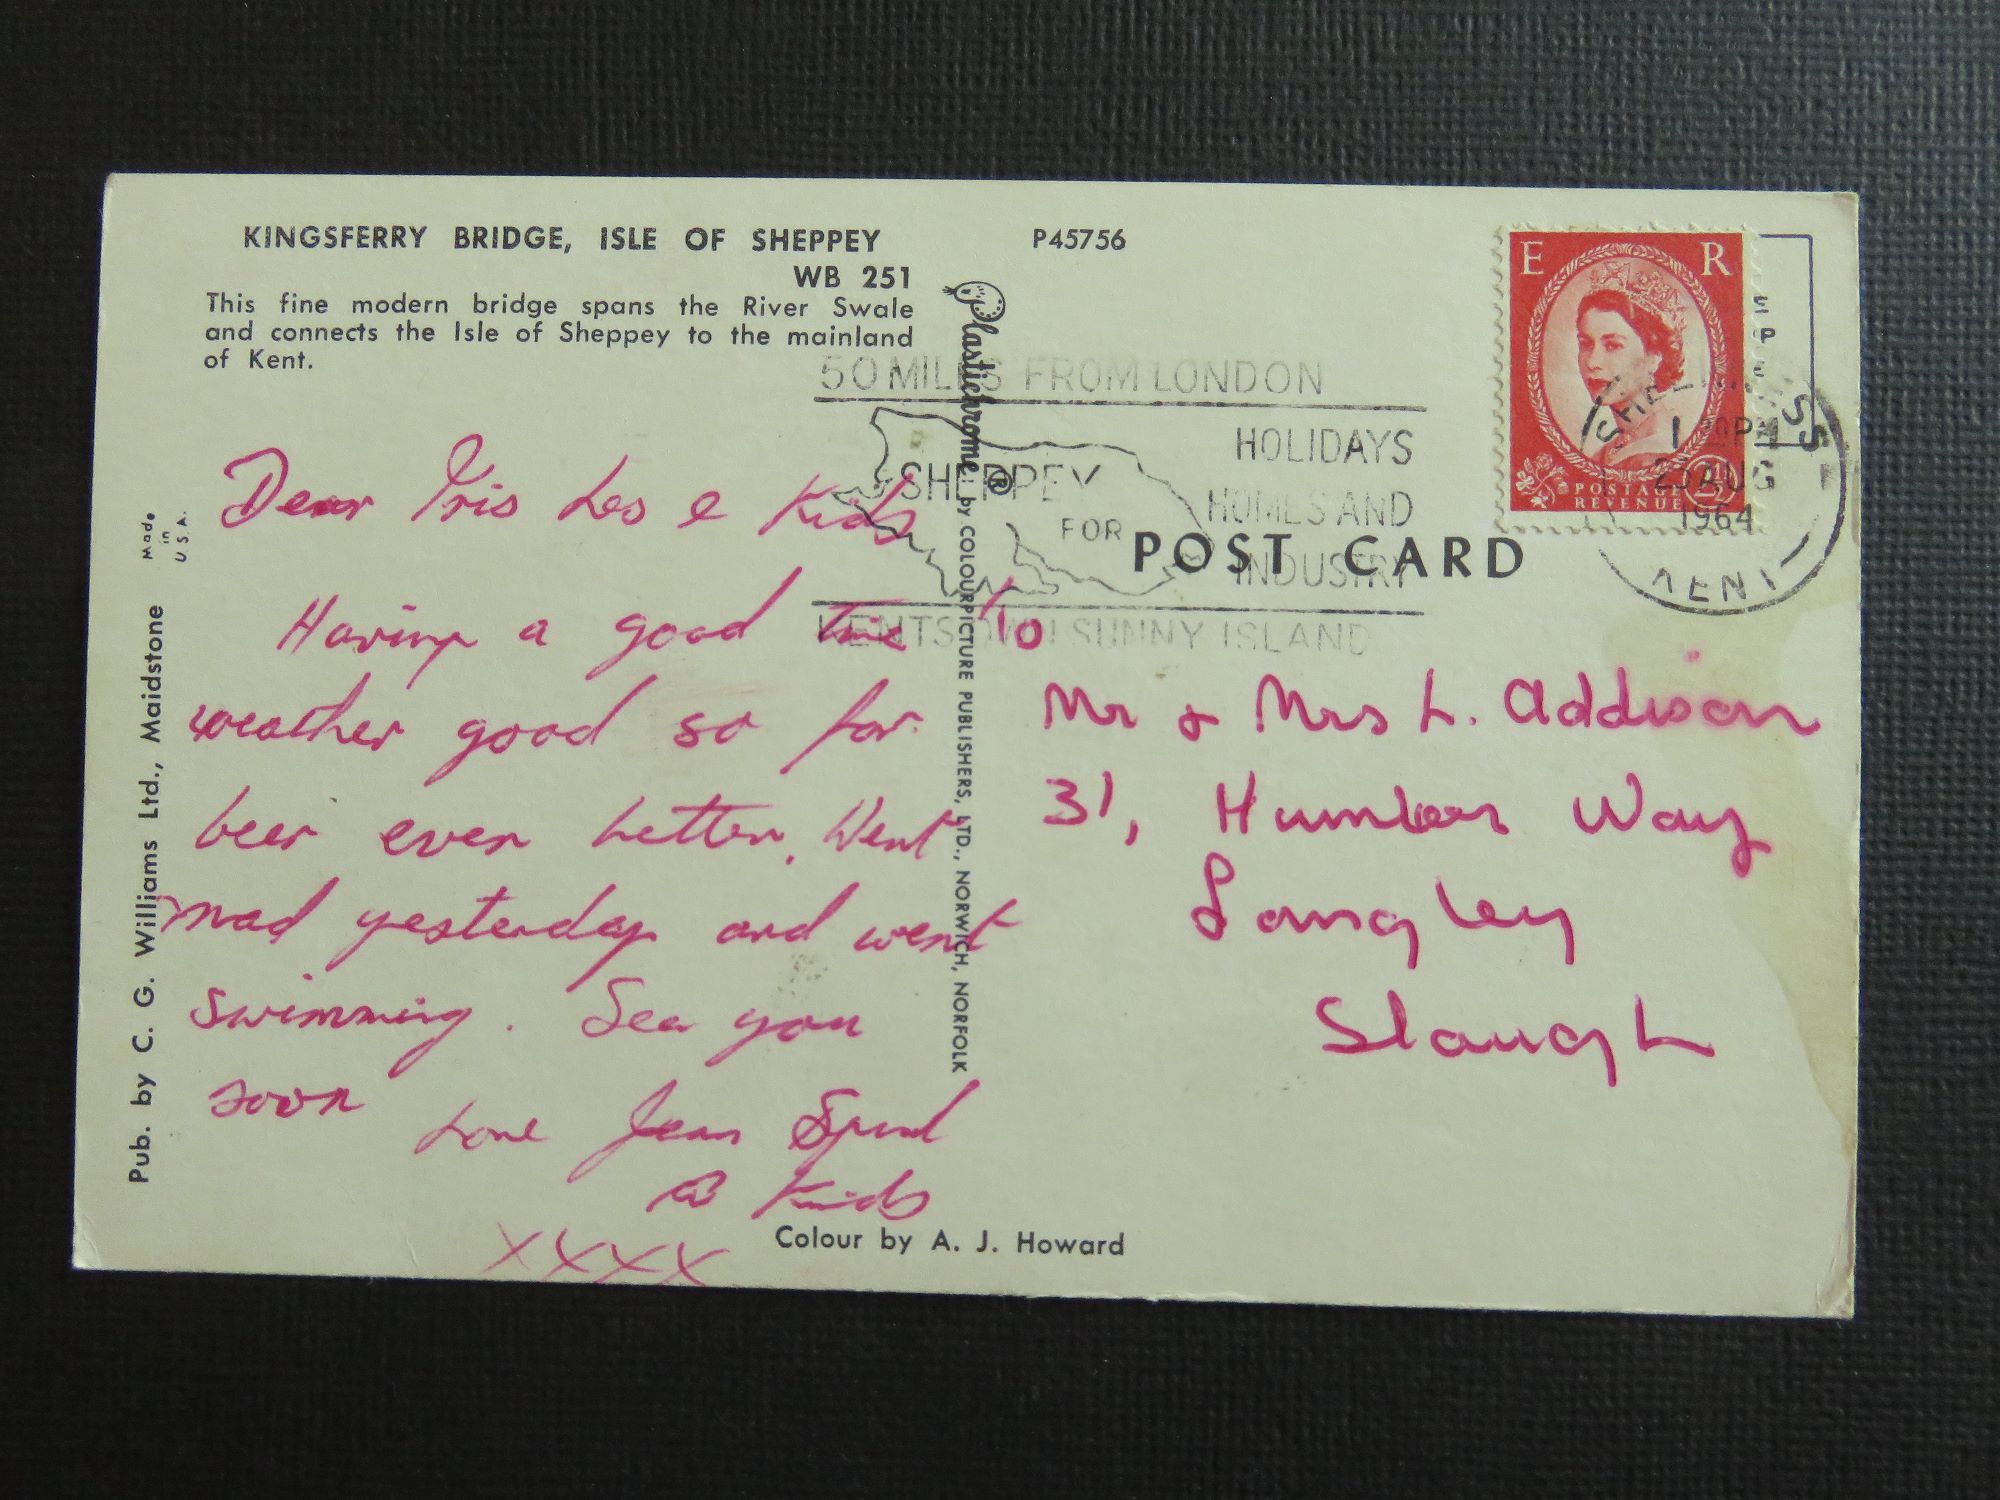 KINGSFERRY BRIDGE, ISLE OF SHEPPEY
WB 251
This fine modern bridge spans the River Swale
and connects the Isle of Sheppey to the mainland
of Kent.
P45756
E R
POSTAGE
REVENUE
2½
SHEERNESS
PM
AUG
1964
KENT
50 MILES FROM LONDON
SHEPPEY
FOR
HOLIDAYS
HOMES AND
INDUSTRY
KENTS OWN SUNNY ISLAND
POST CARD
Plastichrome ® by COLOURPICTURE PUBLISHERS, LTD., NORWICH, NORFOLK
Made
in
U.S.A.
Pub. by C. G. Williams Ltd., Maidstone
Dear Iris Les & Kids
Having a good time
weather good so far.
beer even better. Went
mad yesterday and went
swimming. See you
soon
Love Jean Spud
& Kids
XXXX
To
Mr & Mrs L. Addison
31, Humber Way
Langley
Slough
Colour by A. J. Howard